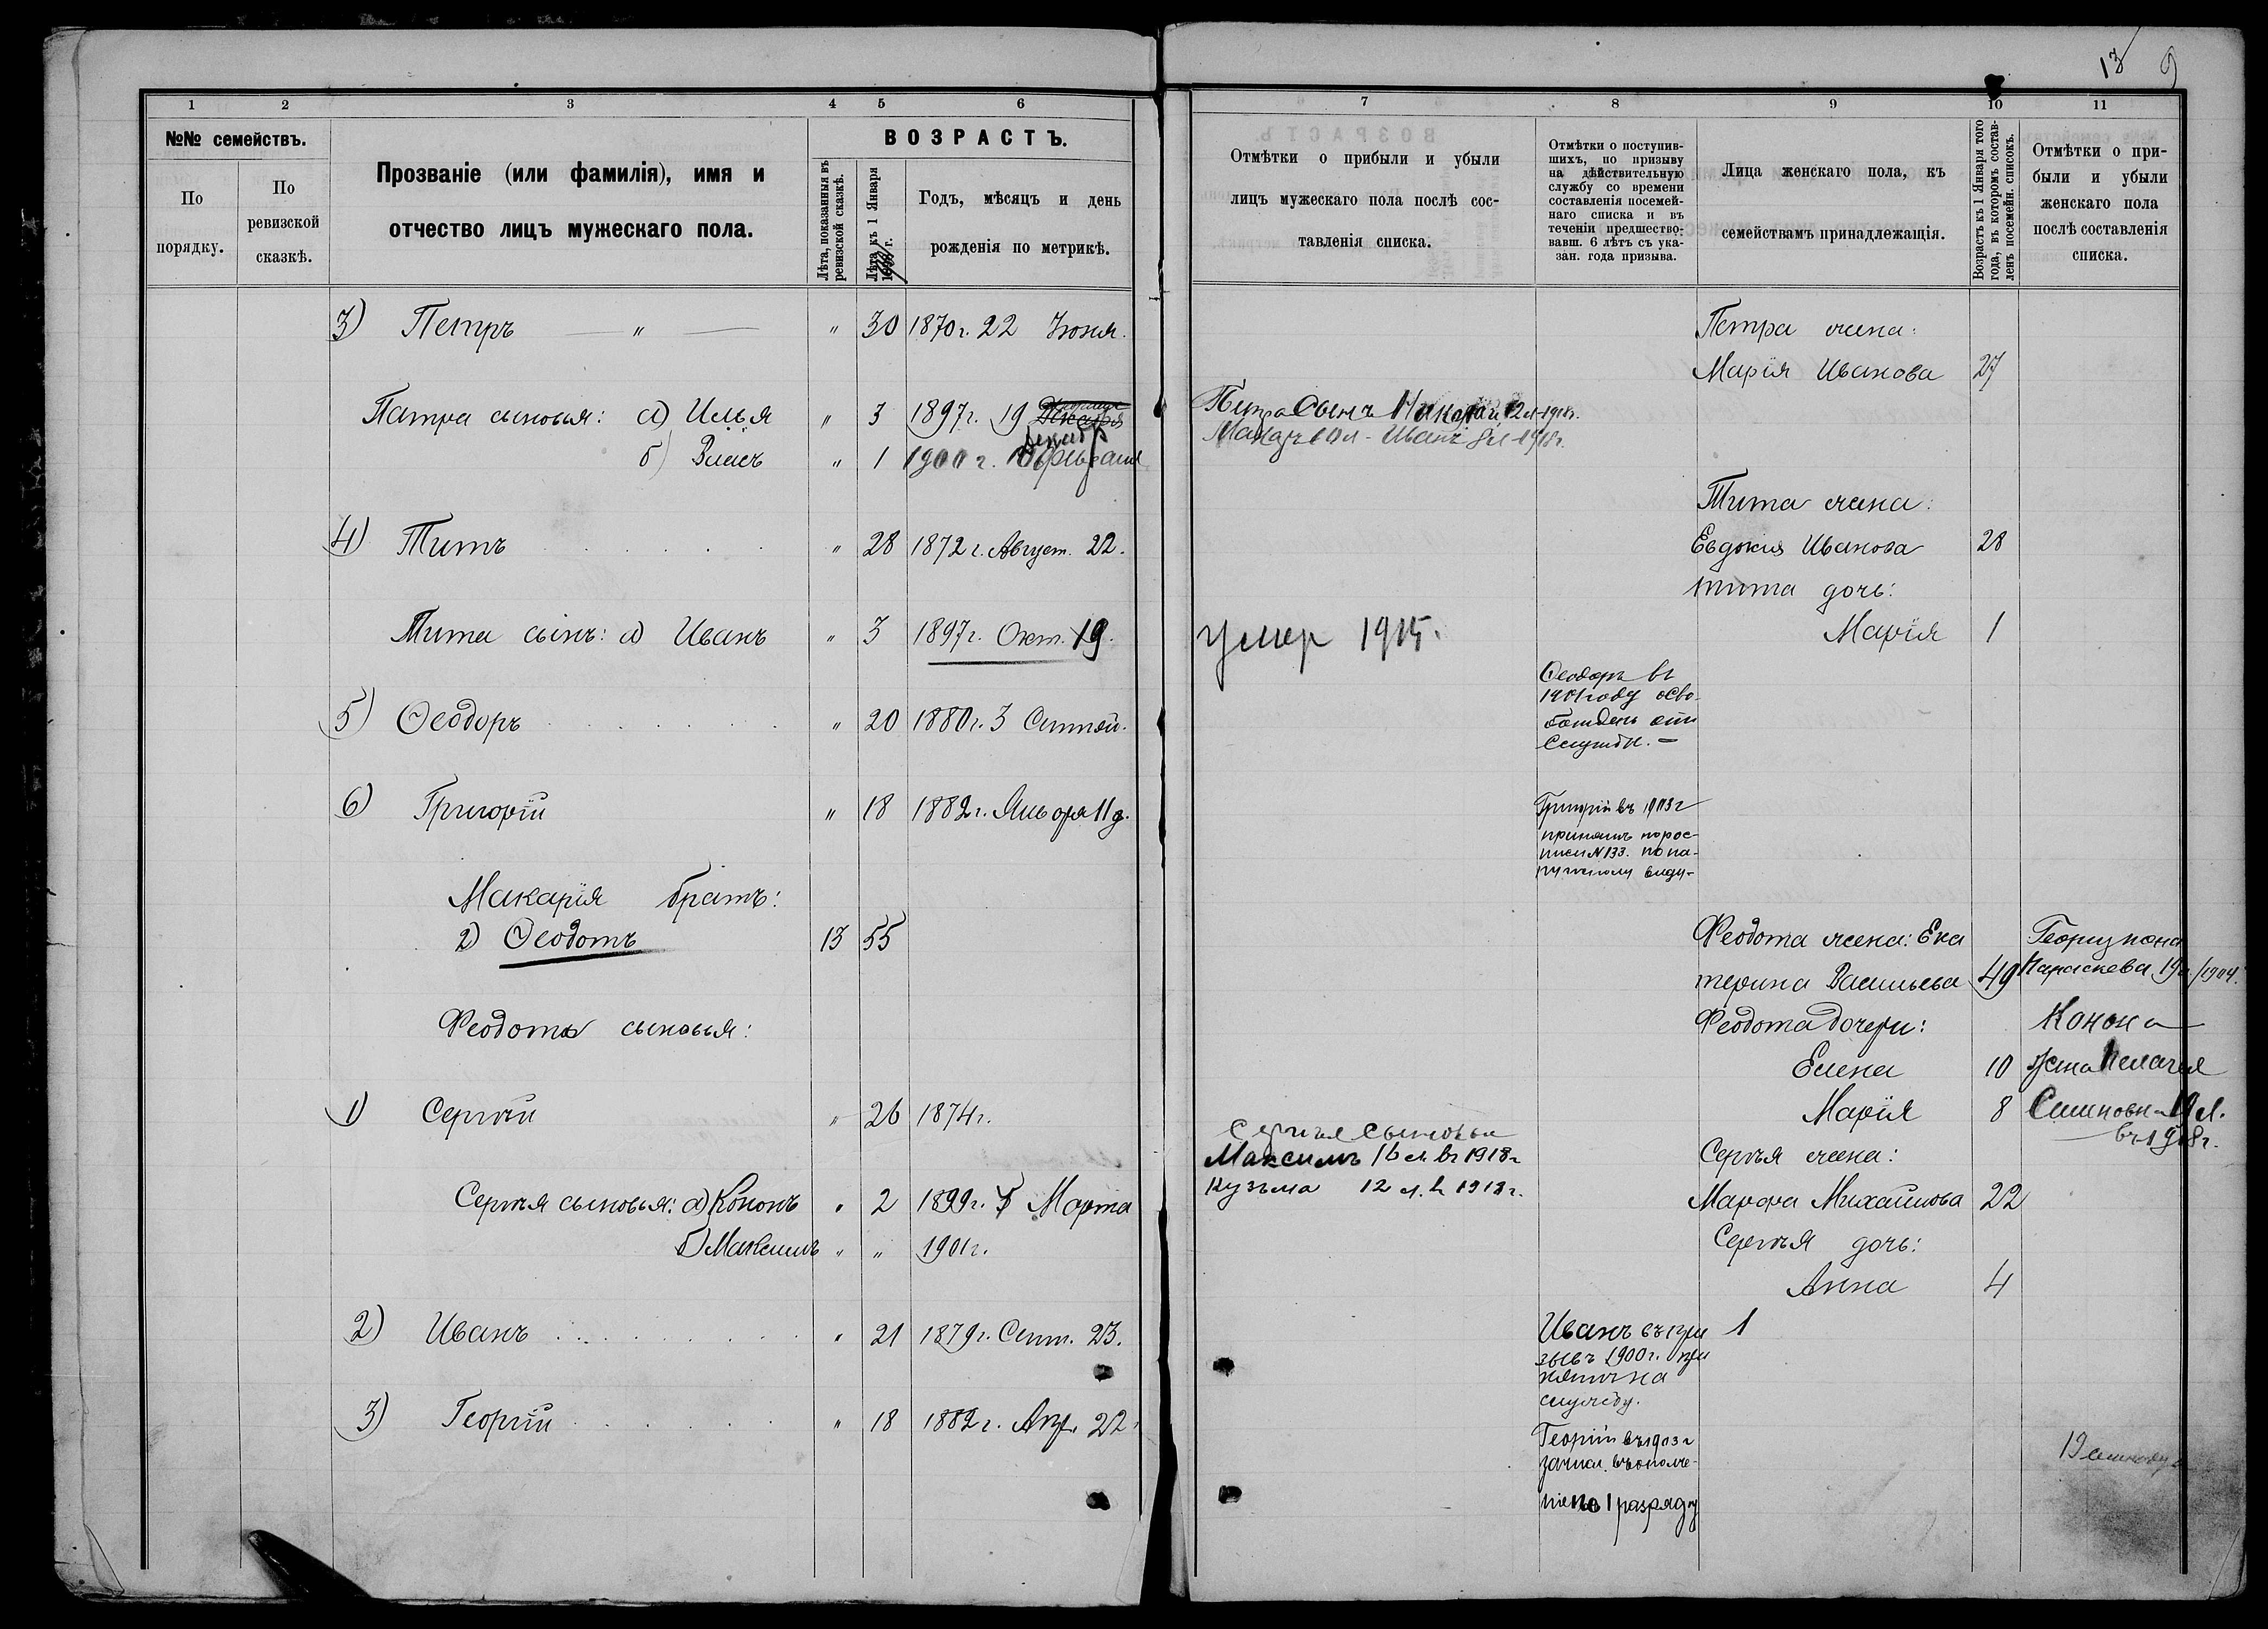 13 9
1 2 3 4 5 6
№№ семействъ.
По порядку.
По ревизской сказкѣ.
Прозваніе (или фамилія), имя и
отчество лицъ мужескаго пола.
ВОЗРАСТЪ.
Лѣта, показанныя въ
ревизской сказкѣ.
Лѣта къ 1 Января
г.
Годъ, мѣсяцъ и день
рожденія по метрикѣ.
3) Петръ — " — " 30 1870 г. 22 Іюня.
Петра сыновья: а) Илья " 3 1897 г. 19
Декабр
б) Власъ " 1 1900 г.
4) Титъ " 28 1872 г. Август. 22.
Тита сынъ: а) Иванъ " 3 1897 г. Окт. 19.
5) Ѳеодоръ " 20 1880 г. 3 Сентяб.
6) Григорій " 18 1882 г. Января 11 д.
Макарія братъ:
2) Ѳеодотъ 13 55
Феодота сыновья:
1) Сергѣй " 26 1874 г.
Сергѣя сыновья: а) Кононъ " 2 1899 г. 5 Марта
б) Максимъ " " 1901 г.
2) Иванъ " 21 1879 г. Сент. 23.
3) Георгій " 18 1882 г. Апр. 22.
7 8 9 10 11
Отмѣтки о прибыли и убыли
лицъ мужескаго пола послѣ сос-
тавленія списка.
Отмѣтки о поступив-
шихъ, по призыву
на дѣйствительную
службу со времени
составленія посемей-
наго списка и въ
теченіи предшество-
вавш. 6 лѣтъ съ ука-
зан. года призыва.
Лица женскаго пола, къ
семействамъ принадлежащія.
Возрастъ къ 1 Января того
года, въ которомъ состав-
ленъ посемейн. списокъ.
Отмѣтки о при-
были и убыли
женскаго пола
послѣ составленія
списка.
Петра жена:
Марія Иванова 27
Петра Сынъ Николай 12 л 1918 г.
Макаръ 10 л - Иванъ 8 л 1918 г.
Тита жена:
Евдокия Иванова 28
тита дочь:
Марія 1
умер 1915.
Ѳеодоръ въ
1901 году осво-
божденъ отъ
Службы. -
Григорій въ 1903 г
принятъ по рос-
писи № 133. по на-
ружному виду -
Феодота жена: Ека
терина Васильева 49
Георгія жена
Параскева 19 л/1904.
Феодота дочери:
Елена 10
Марія 8
Конона
жена Пелагея
Семеновна 19 л.
въ 1918 г.
Сергѣя сыновья
Максимъ 16 л. въ 1918 г
Кузьма 12 л. в 1918 г.
Сергѣя жена:
Марфа Михайлова 22
Сергѣя дочь:
Анна 4
Иванъ въ при 1
зывъ 1900 г. при
нятъ на
службу.
Георгій въ 1903 г
зачисл. въ ополче-
ніе по 1 разряду